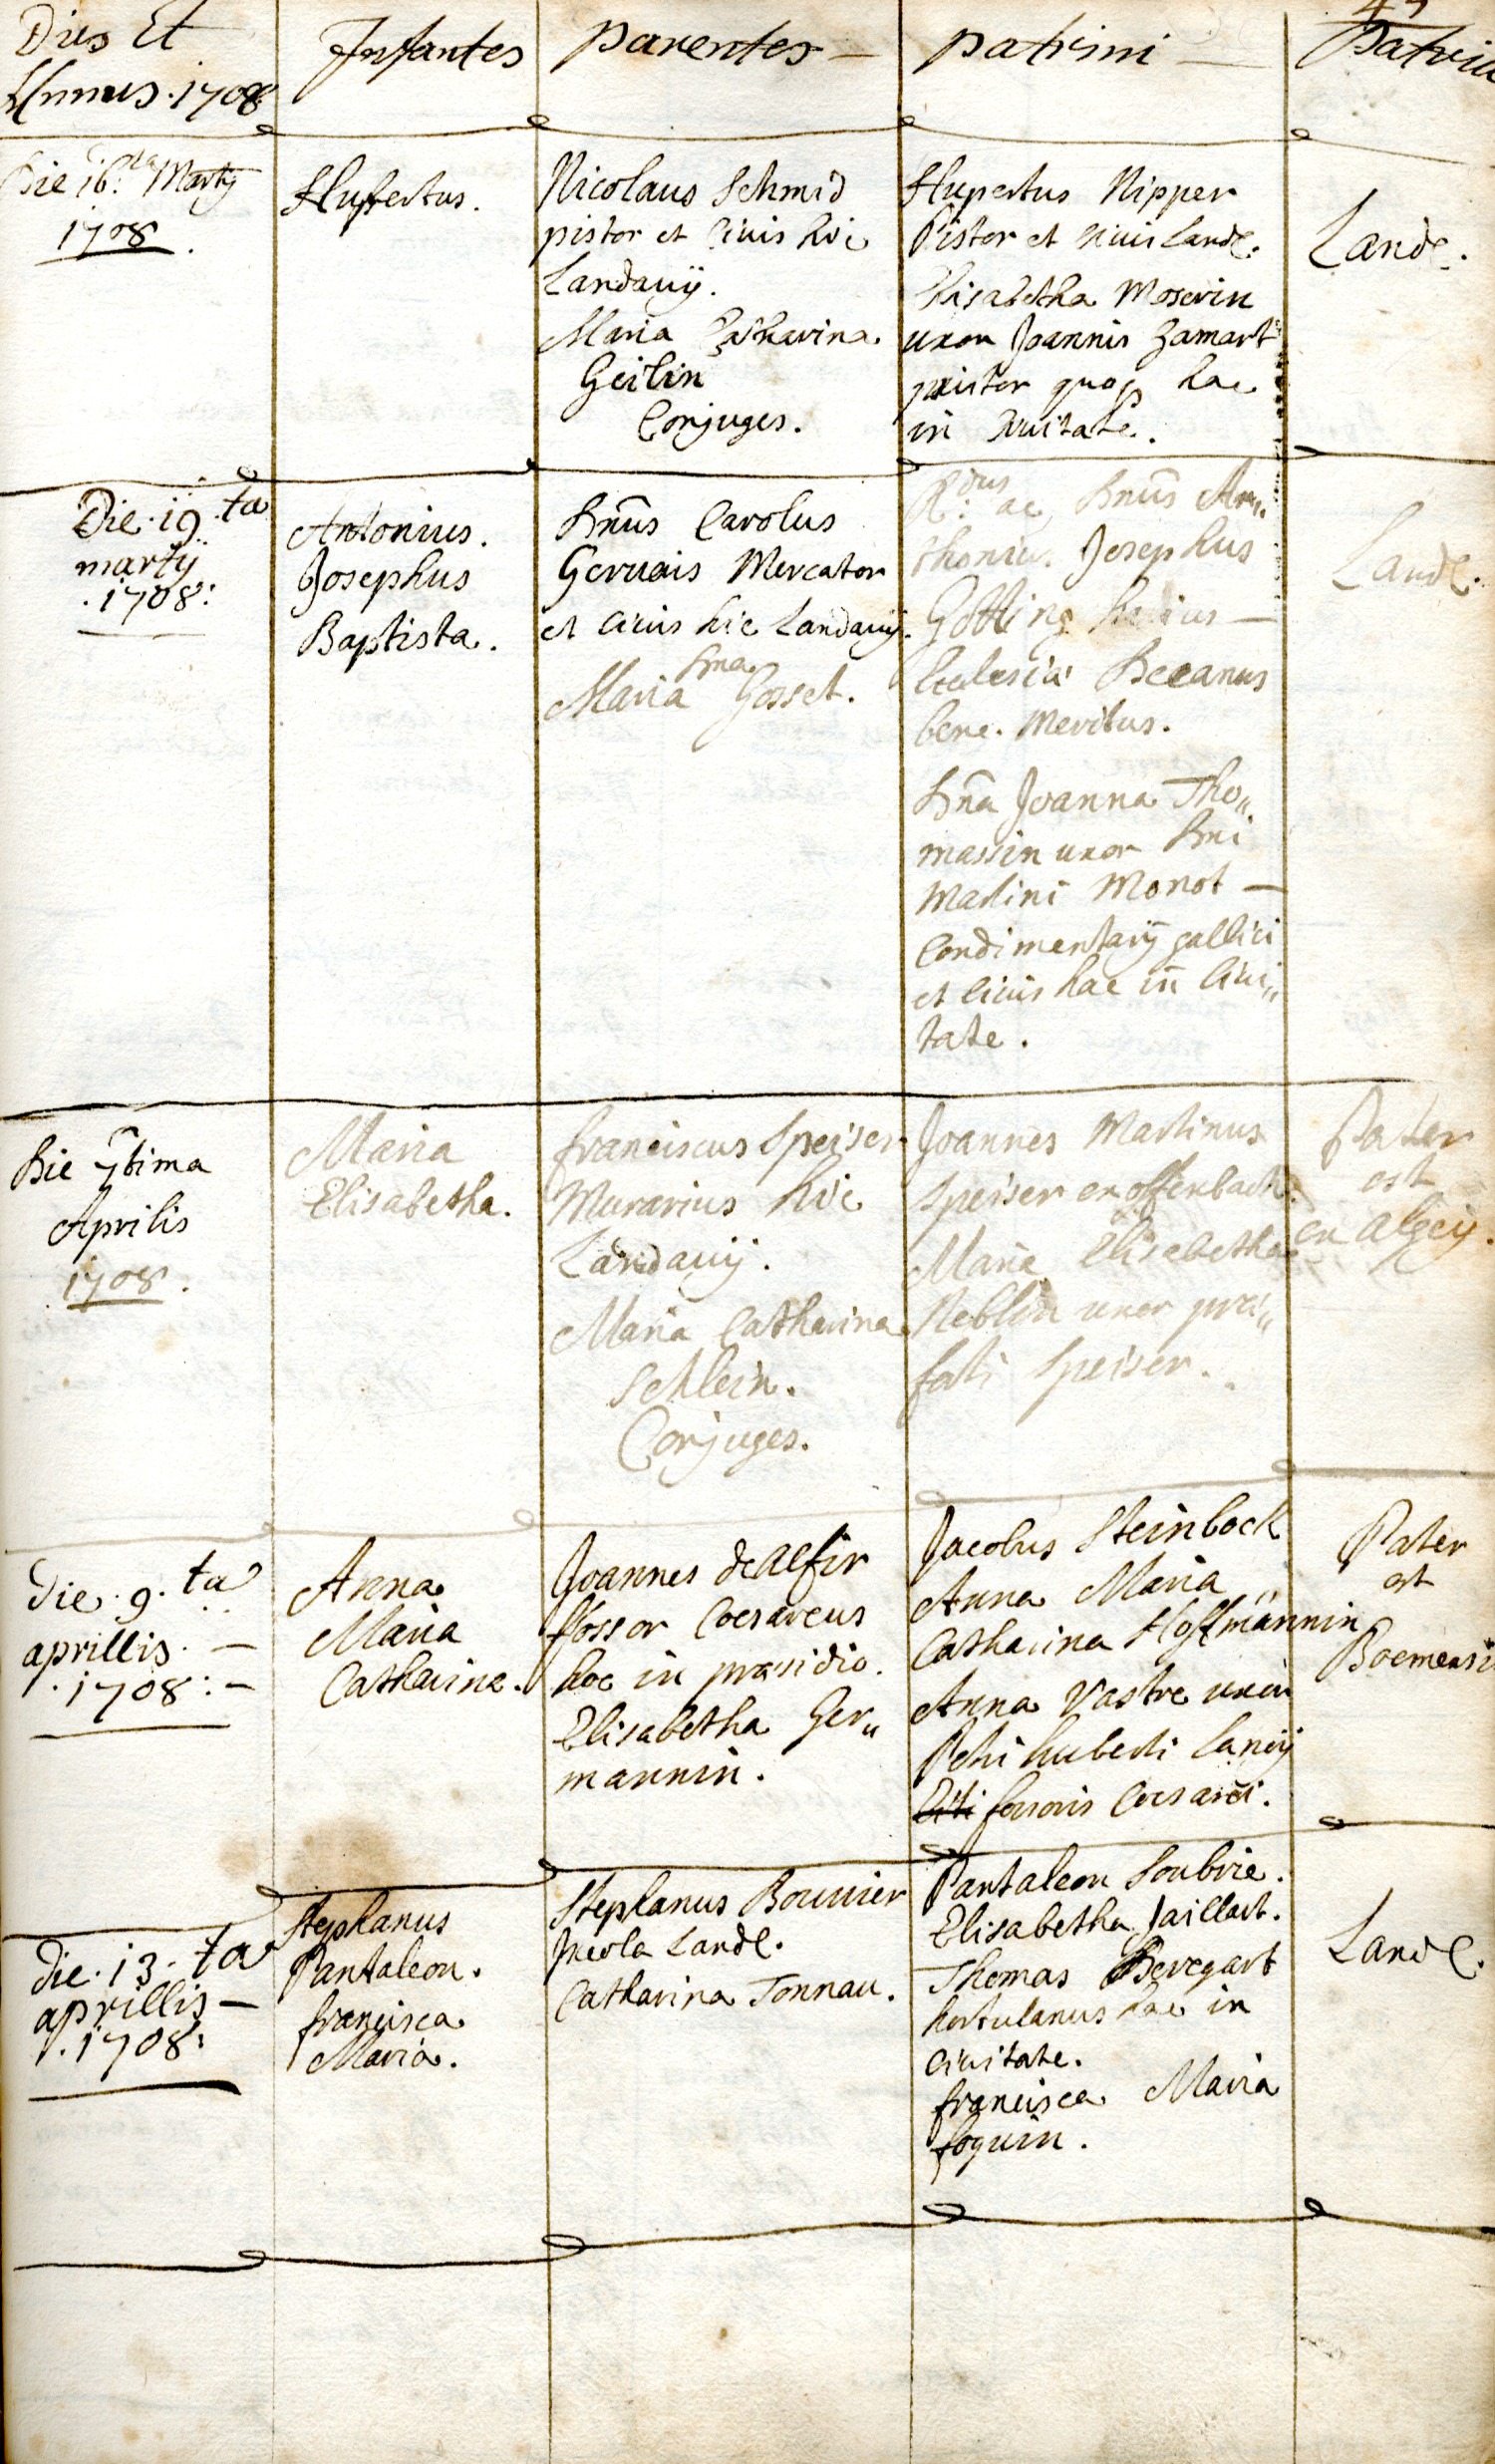 Dies Et
Annus. 1708
Infantes
parentes —
patrini —
Patria
Die 16.ta Martij
1708.
Hupertus.
Nicolaus Schmid
pistor et Civis hic
Landavij.
Maria Catharina
Geilin
Conjuges.
Hupertus Nipper
Pistor et Civis Land.
Elisabetha Moserin
uxor Joannis Zamart
pistor quoq hac
in Civitate.
Land.
Die. 19. ta
martij
. 1708:
Antonius.
Josephus
Baptista.
Dnūs Carolus
Gervais Mercator
et Civis hic Landavij.
Dna
Maria Gosset.
R.dus ac Dnūs An„
thonius Josephus
Gotting
Ecclesiæ Decanus
bene. Meritus.
Dña Joanna Tho„
massin uxor Dni
Martini Monot —
Condimentarij gallici
et Civis hac in Civi„
tate.
Land.
Die 7btima
Aprilis
1708.
Maria
Elisabetha.
franciscus Speiser
Murarius hic
Landavij.
Maria Catharina
Schlein.
Conjuges.
Joannes Martinus
Speiser ex offenbach.
Maria Elisabetha
Neblin uxor præ„
fati Speiser.
Pater
est
ex Alzeij.
Die. 9. ta
aprillis. —
. 1708: —
Anna
Maria
Catharina.
Joannes de Alfir
fossor Cæsareus
hoc in præsidio.
Elisabetha Ger„
mannin.
Jacobus Steinbock
Anna Maria
Catharina Hoffmännin
Anna Vastre uxor
Petri huberti Lancij
fossoris Cæsarei.
Pater
est
Boemensi
die. 13. ta
aprillis —
. 1708:
Stephanus
Pantaleon.
francisca
Maria.
Stephanus Bouvier
Incola Land.
Catharina Tonnau.
Pantaleon Soubrie.
Elisabetha Jaillart.
Thomas Beregart
hortulanus hac in
Civitate.
francisca Maria
foquin.
Land.